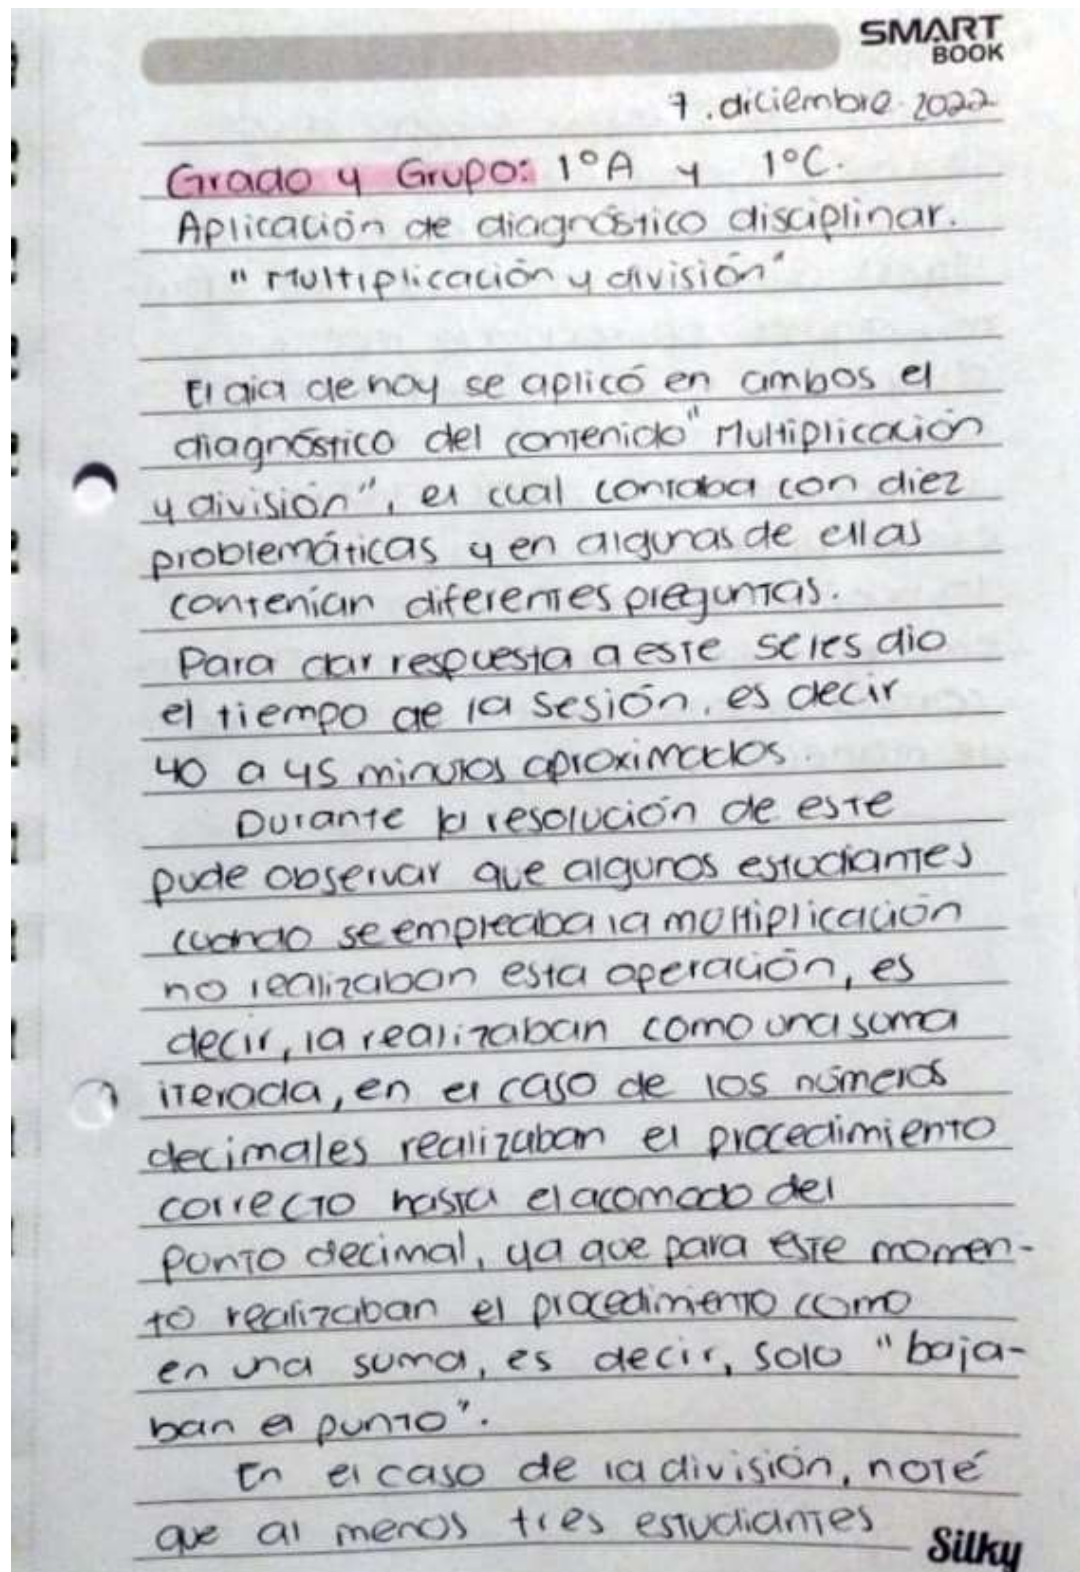 SMART
BOOK
7. diciembre. 2022
Grado y Grupo: 1°A y 1°C.
Aplicación de diagnóstico disciplinar.
"Multiplicación y división"
El dia de hoy se aplicó en ambos el
diagnóstico del contenido "Multiplicación
y división", el cual contaba con diez
problemáticas y en algunas de ellas
contenían diferentes preguntas.
Para dar respuesta a este se les dio
el tiempo de la sesión, es decir
40 a 45 minutos aproximados.
Durante la resolución de este
pude observar que algunos estudiantes
cuando se empleaba la multiplicación
no realizaban esta operación, es
decir, la realizaban como una suma
iterada, en el caso de los números
decimales realizaban el procedimiento
correcto hasta el acomodo del
punto decimal, ya que para este momen-
to realizaban el procedimiento como
en una suma, es decir, solo "baja-
ban el punto".
En el caso de la división, noté
que al menos tres estudiantes
Silky